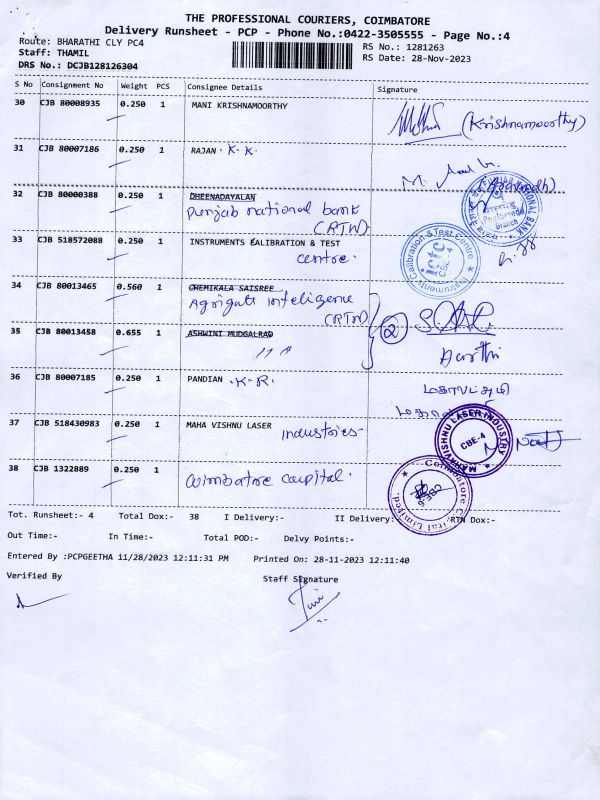 THE PROFESSIONAL COURIERS, COIMBATORE
Delivery Runsheet - PCP - Phone No.:0422-3505555 - Page No.:4
Route: BHARATHI CLY PC4 RS No.: 1281263
Staff: THAMIL RS Date: 28-Nov-2023
DRS No.: DCJB128126304
S No Consignment No Weight PCS Consignee Details Signature
30 CJB 80008935 0.250 1 MANI KRISHNAMOORTHY (Krishnamoorthy)
31 CJB 80007186 0.250 1 RAJAN . K. K.
32 CJB 80000388 0.250 1 DHEENADAYALAN
Punjab national bank
(RTN)
33 CJB 518572088 0.250 1 INSTRUMENTS CALIBRATION & TEST
centre.
Instruments Calibration & Test Centre
ictc
CBE-4
34 CJB 80013465 0.560 1 CHEMIKALA SAISREE
Agrigate inteligene
(RTN)
2
35 CJB 80013458 0.655 1 ASHWINI MUDGALRAO
Aarthi
36 CJB 80007185 0.250 1 PANDIAN .K.R.
37 CJB 518430983 0.250 1 MAHA VISHNU LASER Industries-
MAHAVISHNU LASER INDUSTRY
CBE-4
38 CJB 1322889 0.250 1
Coimbatore Capital.
Coimbatore Capital Limited
Tot. Runsheet:- 4 Total Dox:- 38 I Delivery:- II Delivery: RTN Dox:-
Out Time:- In Time:- Total POD:- Delvy Points:-
Entered By :PCPGEETHA 11/28/2023 12:11:31 PM Printed On: 28-11-2023 12:11:40
Verified By Staff Signature